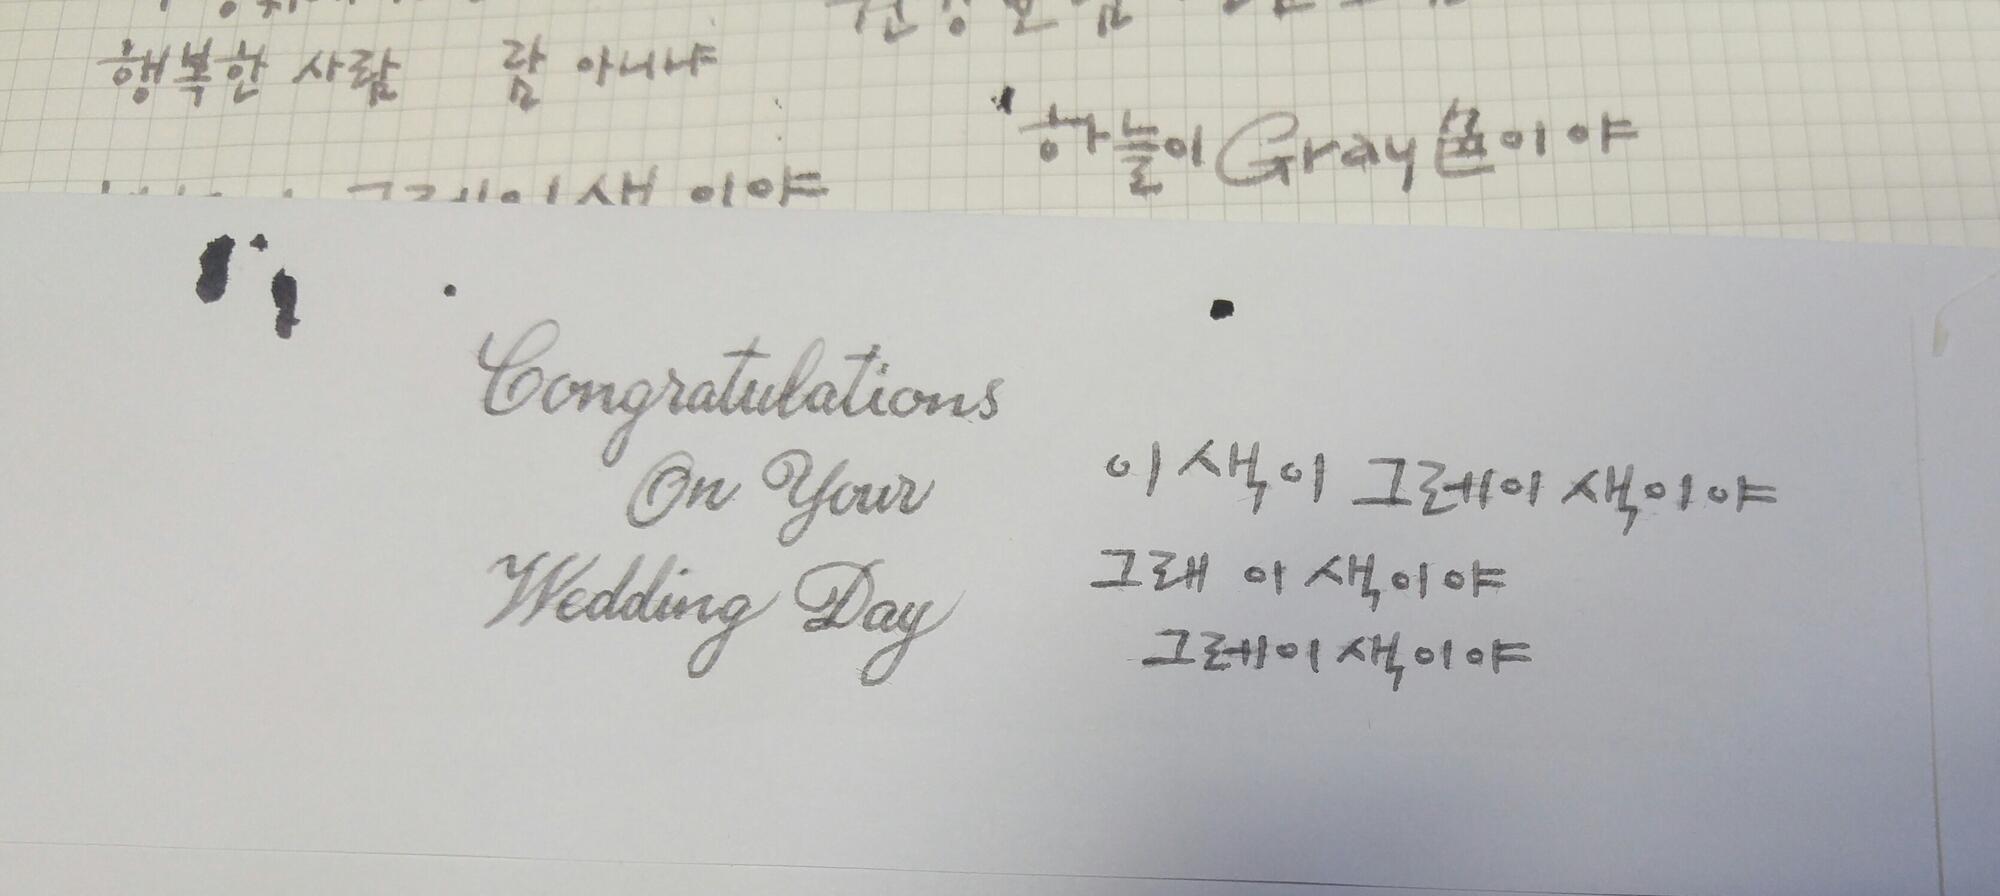 행복한 사람 람 아니냐
하늘이 Gray色이야
그레이색이야
Congratulations
On Your
Wedding Day
이 색이 그레이색이야
그래 이 색이야
그레이색이야